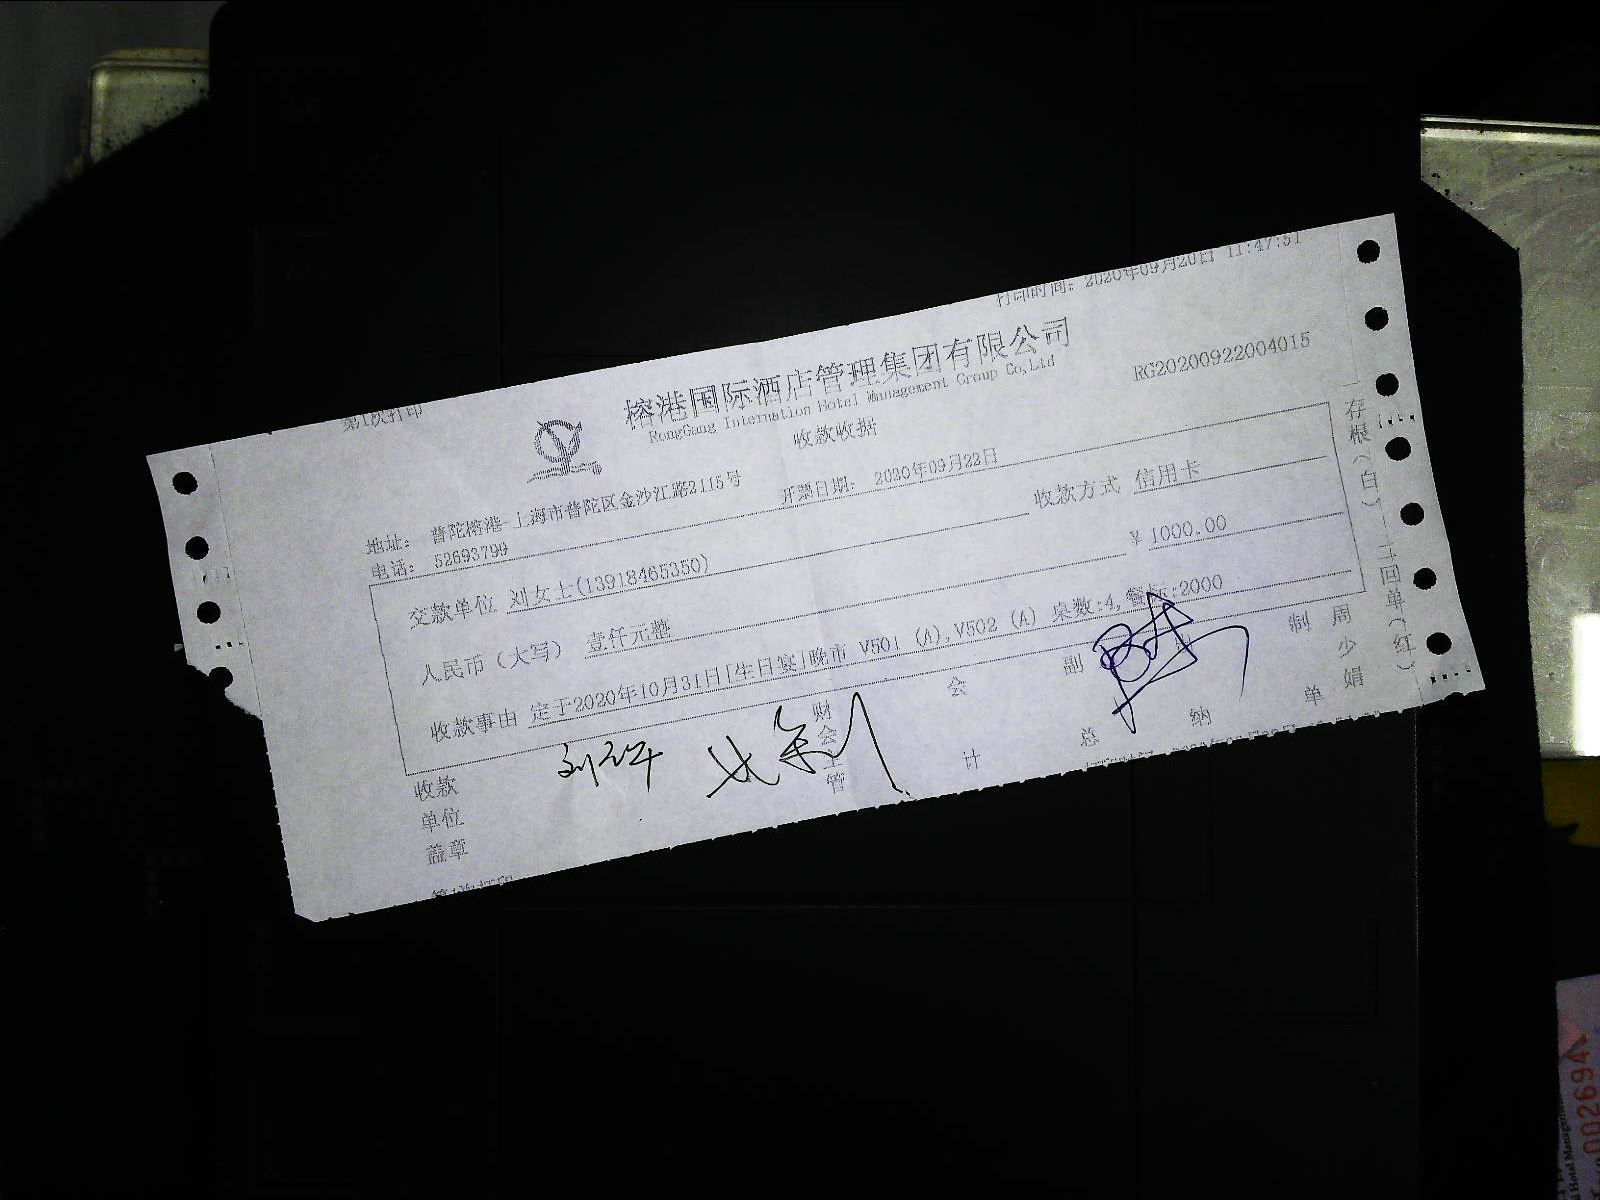 打印时间: 2020年09月20日 11:47:51
第1次打印
榕港国际酒店管理集团有限公司
RongGang Internation Hotel Management Group Co,Ltd
RG20200922004015
收款收据
地址: 普陀榕港-上海市普陀区金沙江路2115号
电话: 52693799
开票日期: 2020年09月22日
交款单位 刘女士(13918465350)
收款方式 信用卡
人民币（大写） 壹仟元整
￥ 1000.00
收款事由 定于2020年10月31日|生日宴|晚市 V501 (A),V502 (A) 桌数:4,餐标:2000
存根(白) 二回单(红)
收款单位盖章
财会主管
会计
副总
纳
制单
周少娟
第1次打印
002694